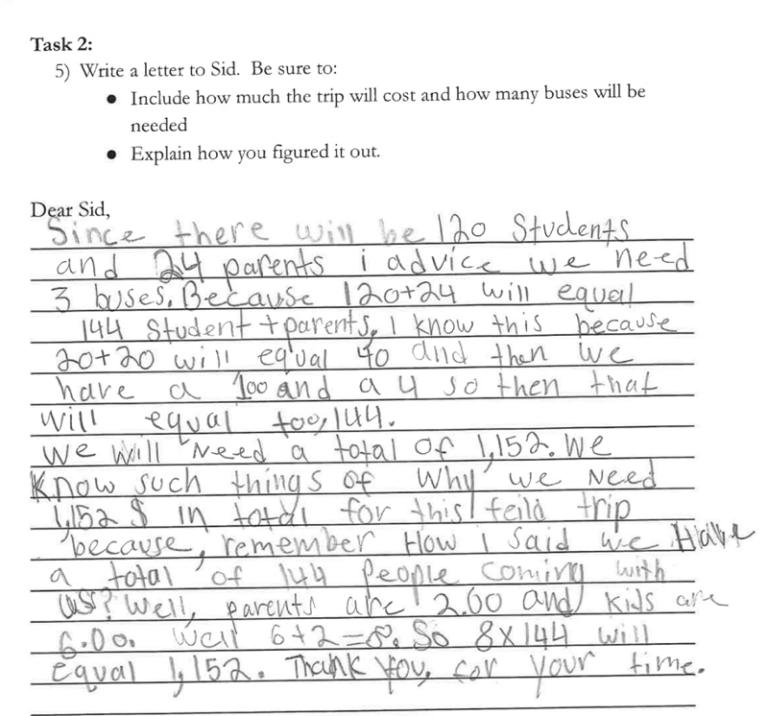 Task 2:
5) Write a letter to Sid. Be sure to:
• Include how much the trip will cost and how many buses will be
needed
• Explain how you figured it out.
Dear Sid,
Since there will be 120 Students
and 24 parents i advice we need
3 buses. Because 120+24 will equal
144 Student + parents. I know this because
20+20 will equal 40 and then we
have a 100 and a 4 so then that
will equal too, 144.
We Will Need a total of 1,152. We
Know such things of Why we Need
1,152 $ in total for this feild trip
because, remember How I said we Have
a total of 144 People coming with
us? Well, parents are 2.00 and kids are
6.00. Well 6+2=8. So 8x144 will
Equal 1,152. Thank You, for your time.